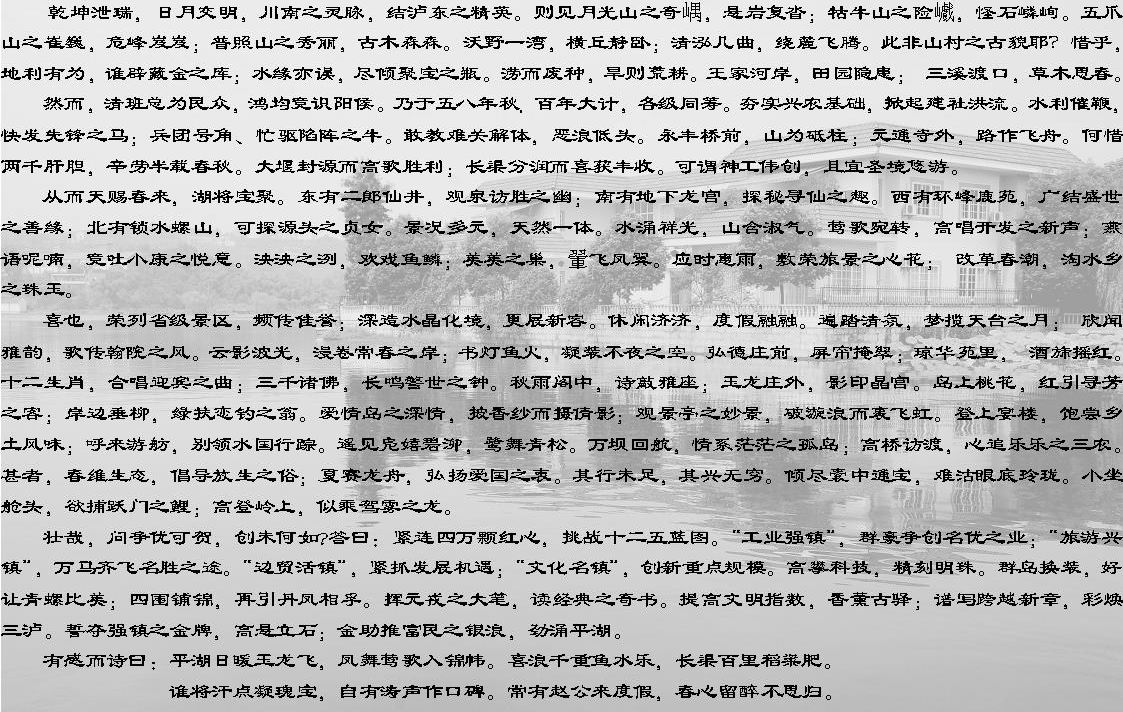 乾坤泄瑞，日月交明，川南之灵脉，结泸东之精英。则见月光山之奇嵎，悬岩复沓；牯牛山之险巇，怪石嶙峋。五爪
山之崔巍，危峰岌岌；普照山之秀丽，古木森森。沃野一湾，横丘静卧；清泓几曲，绕麓飞腾。此非山村之古貌耶？惜乎，
地利有为，谁辟藏金之库；水缘亦误，尽倾聚宝之瓶。涝而废种，旱则荒耕。王家河岸，田园隐患； 三溪渡口，草木思春。
然而，清班总为民众，鸿均竞识阳侯。乃于五八年秋，百年大计，各级同筹。夯实兴农基础，掀起建社洪流。水利催鞭，
快发先锋之马；兵团号角、忙驱陷阵之牛。敢教难关解体，恶浪低头。永丰桥前，山为砥柱；元通寺外，路作飞舟。何惜
两千肝胆，辛劳半载春秋。大堰封源而高歌胜利；长渠分润而喜获丰收。可谓神工伟创，且宜圣境悠游。
从而天赐春来，湖将宝聚。东有二郎仙井，观泉访胜之幽；南有地下龙宫，探秘寻仙之趣。西有环峰鹿苑，广结盛世
之善缘；北有锁水螺山，可探源头之贞女。景况多元，天然一体。水涌祥光，山含淑气。莺歌宛转，高唱开发之新声；燕
语呢喃，竞吐小康之悦意。泱泱之洌，欢戏鱼鳞；美美之巢，翚飞凤翼。应时惠雨，敷荣旅景之心花； 改革春潮，淘水乡
之珠玉。
喜也，荣列省级景区，频传佳誉；深造水晶化境，更展新容。休闲济济，度假融融。遍踏清氛，梦揽天台之月； 欣闻
雅韵，歌传翰院之风。云影波光，漫卷常春之岸；书灯鱼火，凝装不夜之空。弘德庄前，屏帘掩翠；琼华苑里， 酒旆摇红。
十二生肖，合唱迎宾之曲；三千诸佛，长鸣警世之钟。秋雨阁中，诗敲雅座；玉龙庄外，影印晶宫。岛上桃花，红引寻芳
之客；岸边垂柳，绿扶恋钓之翁。爱情岛之深情，披香纱而摄倩影；观景亭之妙景，破漩浪而衷飞虹。登上宴楼，饱尝乡
土风味；呼来游舫，别领水国行踪。遥见凫嬉碧泖，鹭舞青松。万坝回航，情系茫茫之孤岛；高桥访渡，心追乐乐之三农。
甚者，春维生态，倡导放生之俗；夏赛龙舟，弘扬爱国之衷。其行未足，其兴无穷。倾尽囊中通宝，难沽眼底玲珑。小坐
舱头，欲捕跃门之鲤；高登岭上，似乘驾雾之龙。
壮哉，问争优可贺，创未何如？答曰：紧连四万颗红心，挑战十二五蓝图。“工业强镇”，群豪争创名优之业；“旅游兴
镇”，万马齐飞名胜之途。“边贸活镇”，紧抓发展机遇；“文化名镇”，创新重点规模。高攀科技，精刻明珠。群岛换装，好
让青螺比美；四围铺锦，再引丹凤相乎。挥元戎之大笔，读经典之奇书。提高文明指数，香薰古驿；谱写跨越新章，彩焕
三泸。誓夺强镇之金牌，高悬立石；金助推富民之银浪，劲涌平湖。
有感而诗曰：平湖日暖玉龙飞，凤舞莺歌入锦帏。喜浪千重鱼水乐，长渠百里稻粱肥。
谁将汗点凝瑰宝，自有涛声作口碑。常有赵公来度假，春心留醉不思归。